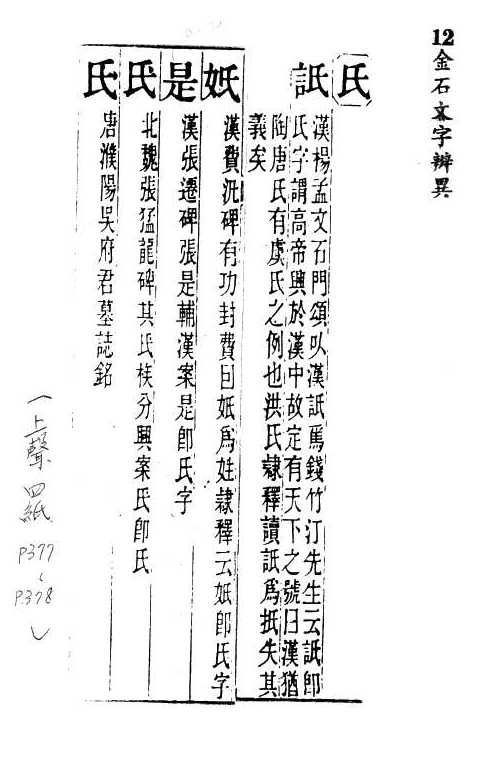 12金石文字辨異
氏
訨
漢楊孟文石門頌以漢訨焉錢竹汀先生云訨卽
氏字謂高帝興於漢中故定有天下之號曰漢猶
陶唐氏有虞氏之例也洪氏隸釋讀訨爲抵失其
義矣
妷
漢費汎碑有功封費因妷爲姓隸釋云妷卽氏字
是
漢張遷碑張是輔漢案是卽氏字
氐
北魏張猛龍碑其氐族分興案氐卽氏
氏
唐濮陽吳府君墓誌銘
(上聲 四紙 P377~P378)